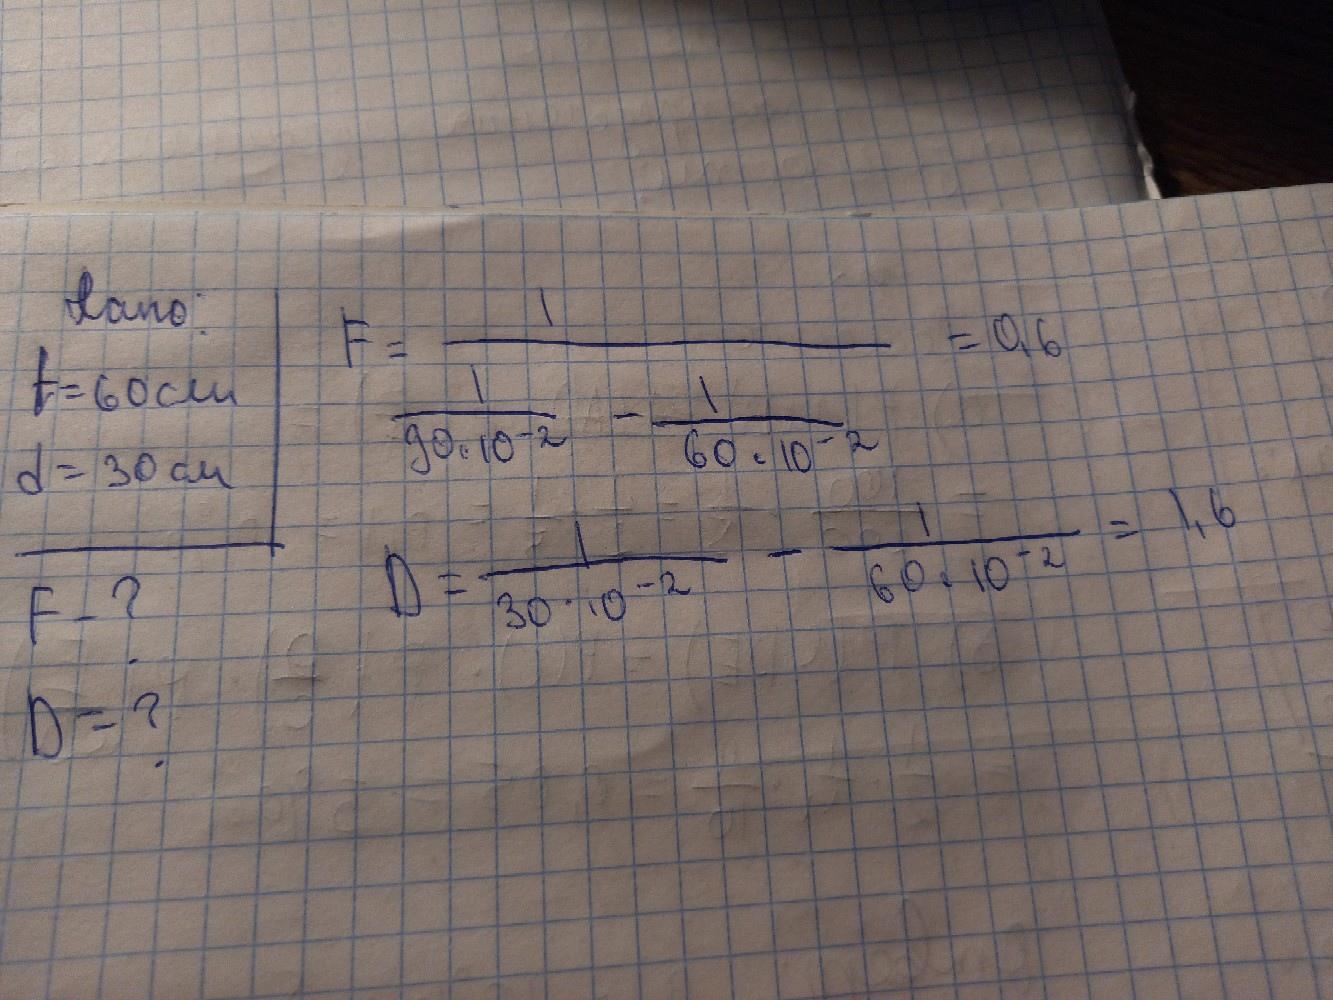 Дано:
f=60см
d=30см
F-?
D=?
F = 1 / (1 / 90·10⁻² - 1 / 60·10⁻²) = 0,6
D = 1 / 30·10⁻² - 1 / 60·10⁻² = 1,6